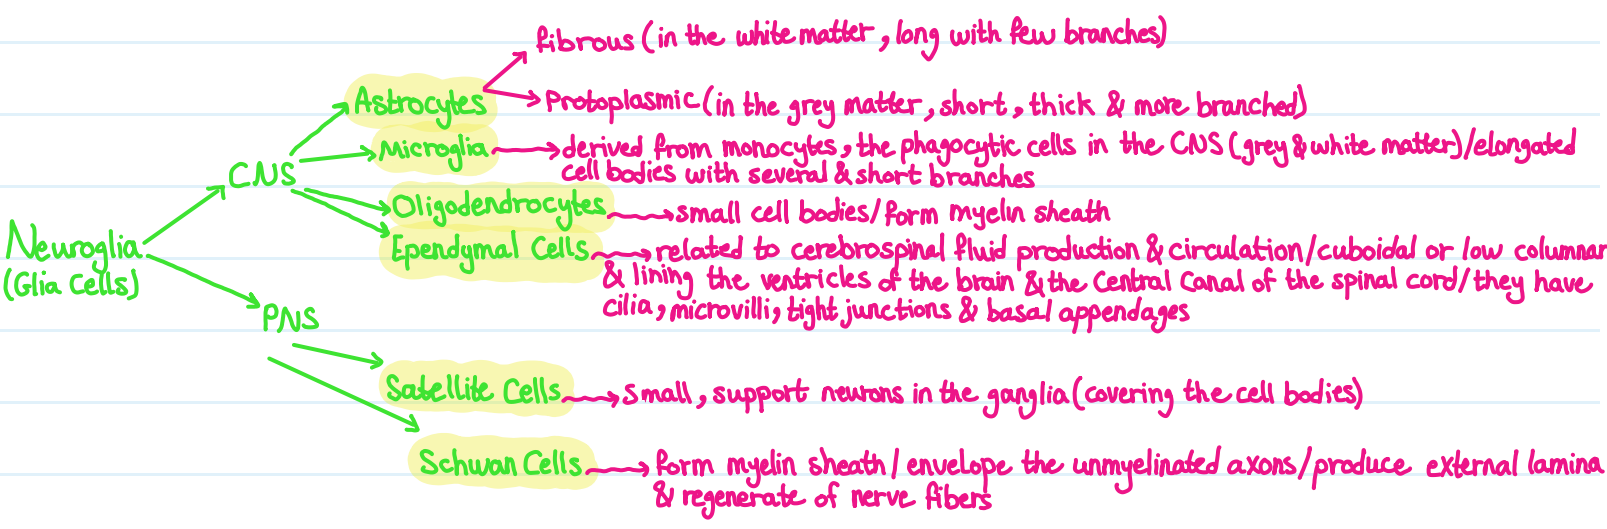 fibrous (in the white matter, long with few branches)
Astrocytes
Protoplasmic (in the grey matter, short, thick & more branched)
Microglia
derived from monocytes, the phagocytic cells in the CNS (grey & white matter)/elongated
cell bodies with several & short branches
CNS
Oligodendrocytes
small cell bodies/form myelin sheath
Neuroglia
(Glia Cells)
Ependymal Cells
related to cerebrospinal fluid production & circulation/cuboidal or low columnar
& lining the ventricles of the brain & the Central Canal of the spinal cord/they have
cilia, microvilli, tight junctions & basal appendages
PNS
Satellite Cells
small, support neurons in the ganglia (covering the cell bodies)
Schwan Cells
form myelin sheath/envelope the unmyelinated axons/produce external lamina
& regenerate of nerve fibers